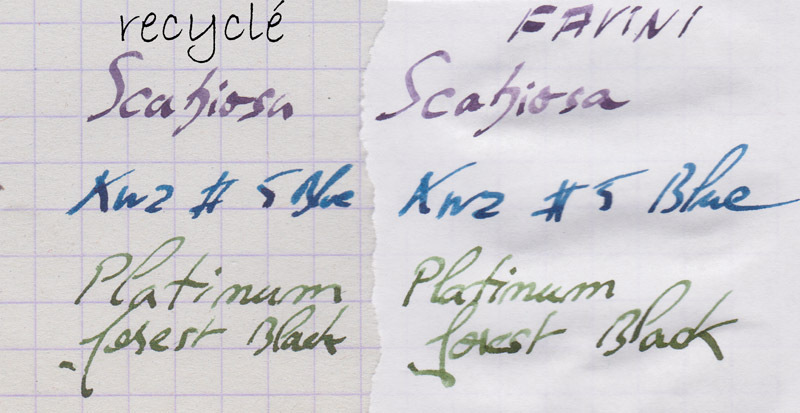 recyclé
Scabiosa
Kwz # 5 Blue
Platinum
forest Black
FAVINI
Scabiosa
Kwz # 5 Blue
Platinum
forest Black